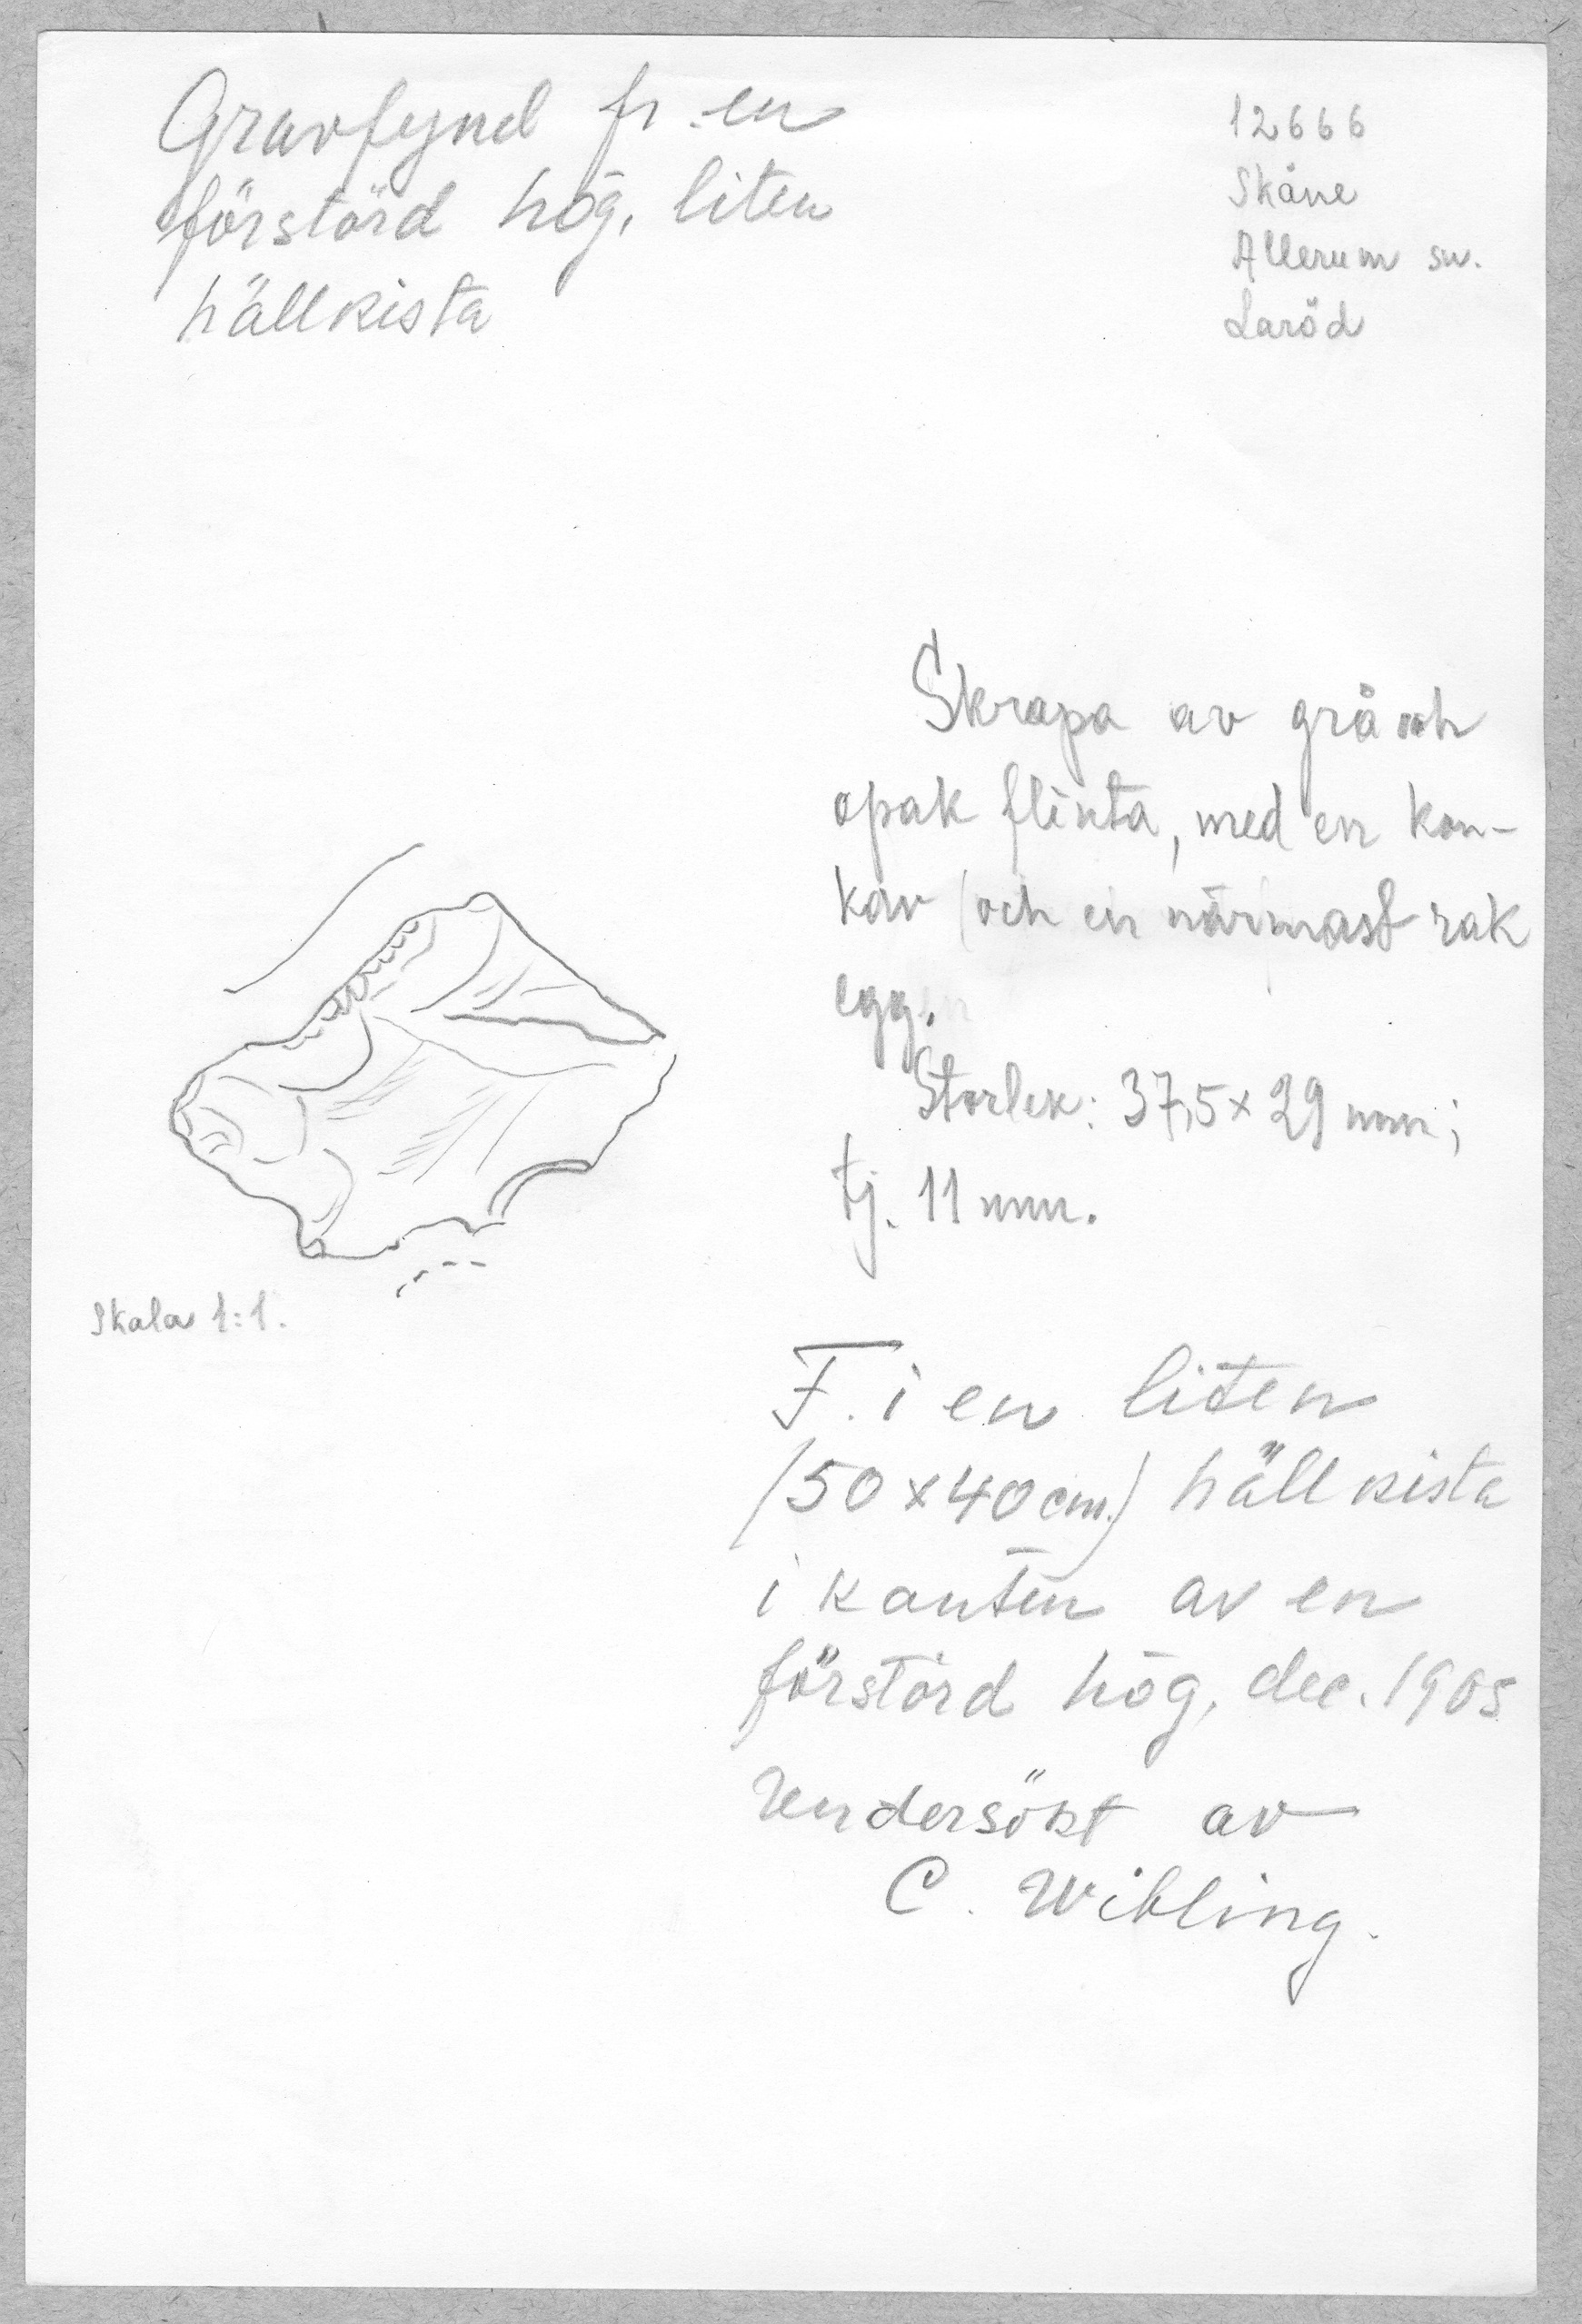 Gravfynd fr. en
förstörd hög, liten
hällkista
12666
Skåne
Allerum sn.
Laröd
Skrapa av grå och
opak flinta, med en kon-
kav (och en närmast rak
egg.
Storlek: 37,5 x 29 mm;
tj. 11 mm.
Skala 1:1.
F. i en liten
(50 x 40 cm.) hällkista
i kanten av en
förstörd hög, dec. 1905
Undersökt av
C. Wibling.